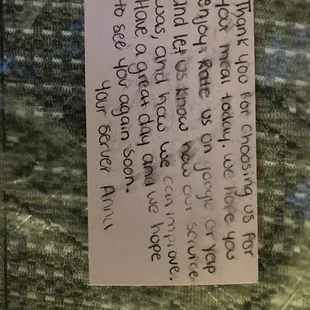 Thank you for choosing us for
your meal today. we hope you
enjoy. Rate us on google or Yelp
and let us know how our service
was, and how we can improve.
Have a great day and we hope
to see you again soon.
Your server Anna